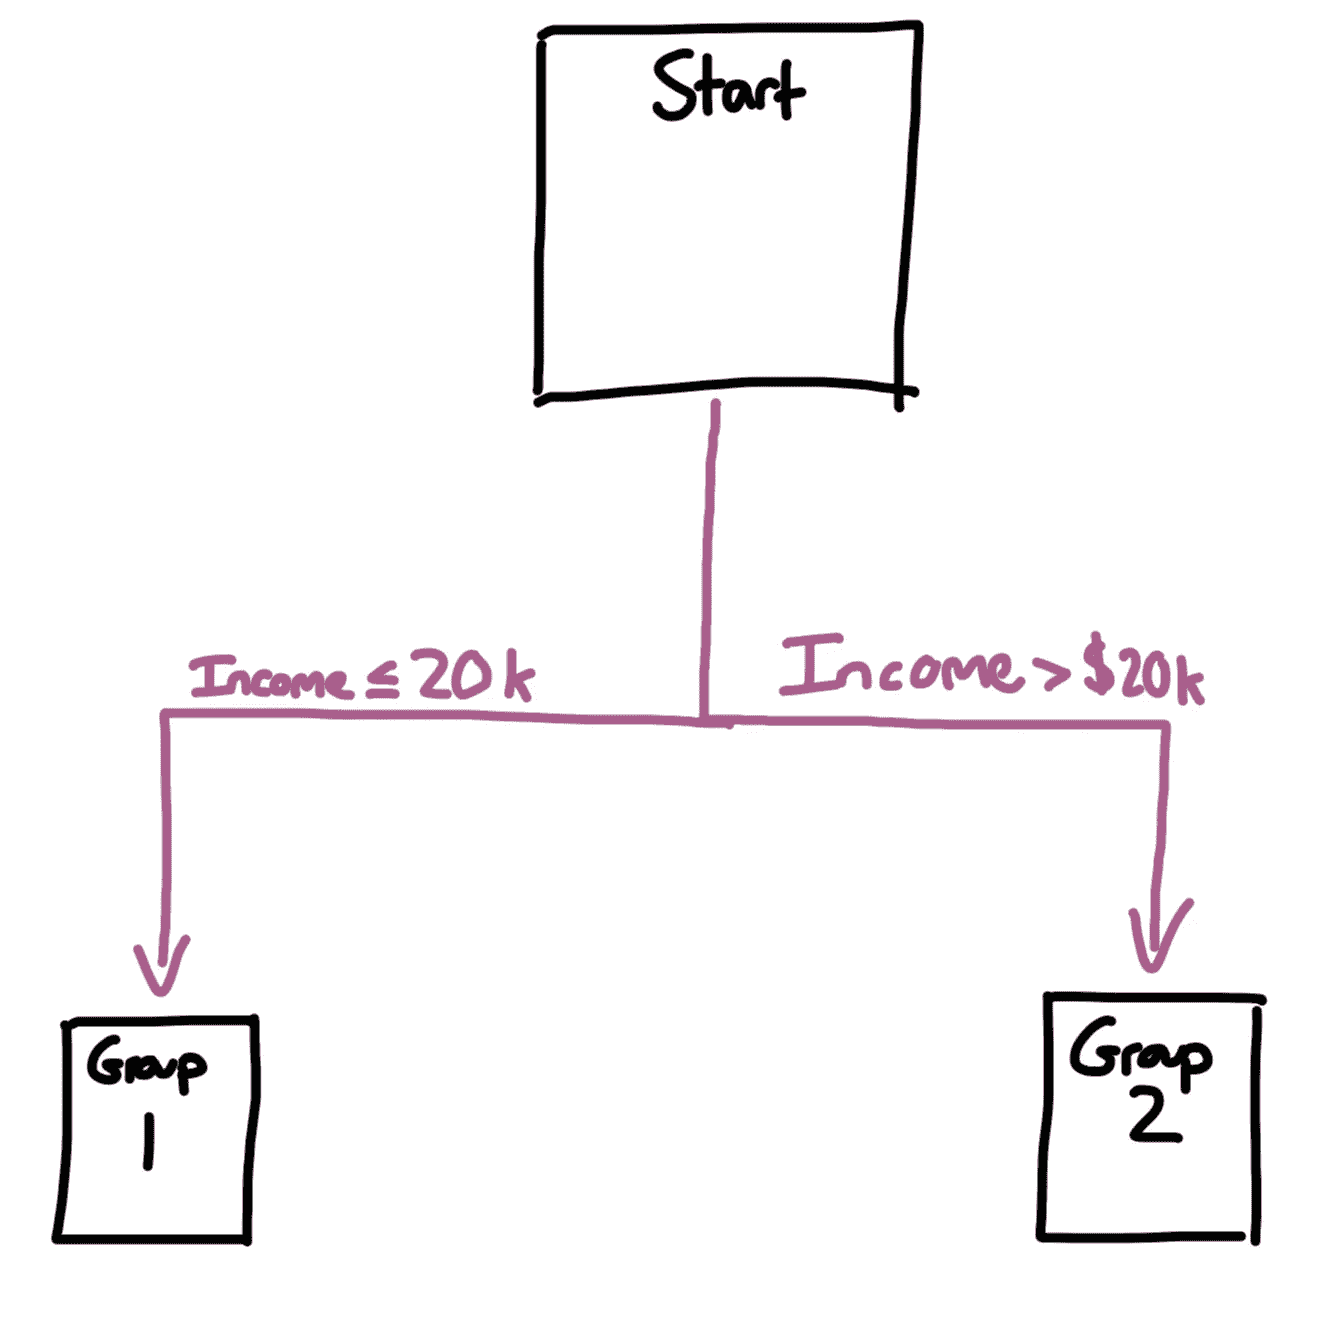 Start
Income ≤ 20k
Income > $20k
Group
1
Group
2